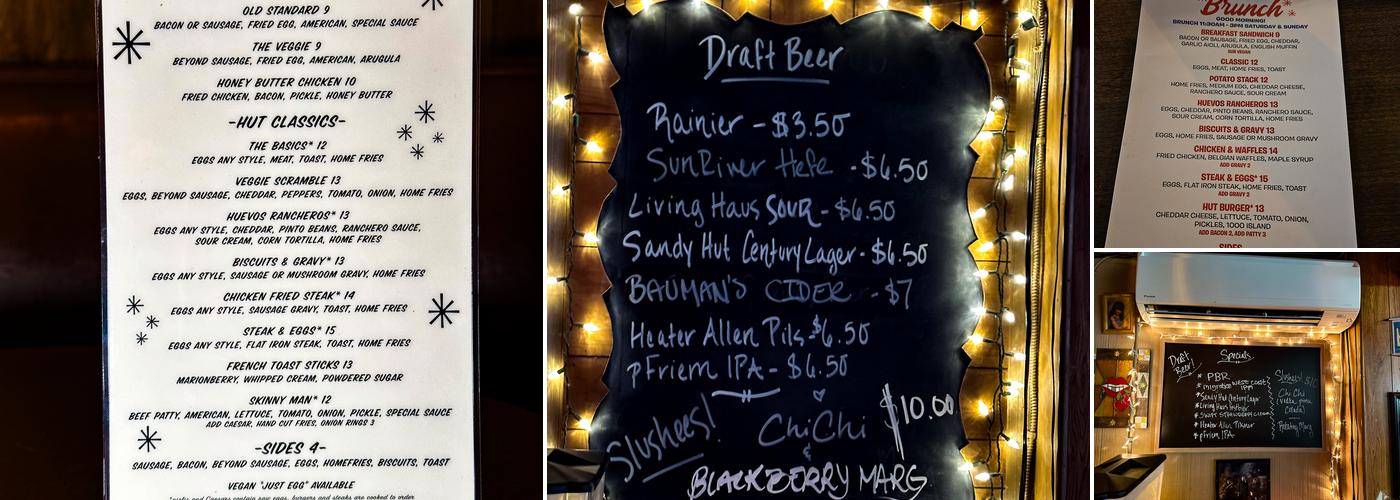 OLD STANDARD 9
BACON OR SAUSAGE, FRIED EGG, AMERICAN, SPECIAL SAUCE
THE VEGGIE 9
BEYOND SAUSAGE, FRIED EGG, AMERICAN, ARUGULA
HONEY BUTTER CHICKEN 10
FRIED CHICKEN, BACON, PICKLE, HONEY BUTTER
-HUT CLASSICS-
THE BASICS* 12
EGGS ANY STYLE, MEAT, TOAST, HOME FRIES
VEGGIE SCRAMBLE 13
EGGS, BEYOND SAUSAGE, CHEDDAR, PEPPERS, TOMATO, ONION, HOME FRIES
HUEVOS RANCHEROS* 13
EGGS ANY STYLE, CHEDDAR, PINTO BEANS, RANCHERO SAUCE,
SOUR CREAM, CORN TORTILLA, HOME FRIES
BISCUITS & GRAVY* 13
EGGS ANY STYLE, SAUSAGE OR MUSHROOM GRAVY, HOME FRIES
CHICKEN FRIED STEAK* 14
EGGS ANY STYLE, SAUSAGE GRAVY, TOAST, HOME FRIES
STEAK & EGGS* 15
EGGS ANY STYLE, FLAT IRON STEAK, TOAST, HOME FRIES
FRENCH TOAST STICKS 13
MARIONBERRY, WHIPPED CREAM, POWDERED SUGAR
SKINNY MAN* 12
BEEF PATTY, AMERICAN, LETTUCE, TOMATO, ONION, PICKLE, SPECIAL SAUCE
ADD CAESAR, HAND CUT FRIES, ONION RINGS 3
-SIDES 4-
SAUSAGE, BACON, BEYOND SAUSAGE, EGGS, HOMEFRIES, BISCUITS, TOAST
VEGAN "JUST EGG" AVAILABLE
Draft Beer
Rainier - $3.50
SunRiver Hefe - $6.50
Living Haus SOUR - $6.50
Sandy Hut Century Lager - $6.50
BAUMAN'S CIDER - $7
Heater Allen Pils $6.50
pFriem IPA - $6.50
Slushees!
ChiChi $10.00
&
BLACKBERRY MARG
Brunch
GOOD MORNING!
BRUNCH 11:30AM - 3PM SATURDAY & SUNDAY
BREAKFAST SANDWICH 9
BACON OR SAUSAGE, FRIED EGG, CHEDDAR,
GARLIC AIOLI, ARUGULA, ENGLISH MUFFIN
SUB VEGAN
CLASSIC 12
EGGS, MEAT, HOME FRIES, TOAST
POTATO STACK 12
HOME FRIES, MEDIUM EGG, CHEDDAR CHEESE,
RANCHERO SAUCE, SOUR CREAM
HUEVOS RANCHEROS 13
EGGS, CHEDDAR, PINTO BEANS, RANCHERO SAUCE,
SOUR CREAM, CORN TORTILLA, HOME FRIES
BISCUITS & GRAVY 13
EGGS, HOME FRIES, SAUSAGE OR MUSHROOM GRAVY
CHICKEN & WAFFLES 14
FRIED CHICKEN, BELGIAN WAFFLES, MAPLE SYRUP
ADD GRAVY 2
STEAK & EGGS* 15
EGGS, FLAT IRON STEAK, HOME FRIES, TOAST
ADD GRAVY 2
HUT BURGER* 13
CHEDDAR CHEESE, LETTUCE, TOMATO, ONION,
PICKLES, 1000 ISLAND
ADD BACON 2, ADD PATTY 3
SIDES
Draft Beer!
Specials
* PBR
* migration west coast IPA
* Sandy Hut Century Lager
* Living Haus
* Heater Allen Pilsner
* pFriem IPA
Slushees!
Chi Chi
(vodka, pina
colada)
Rotating Marg